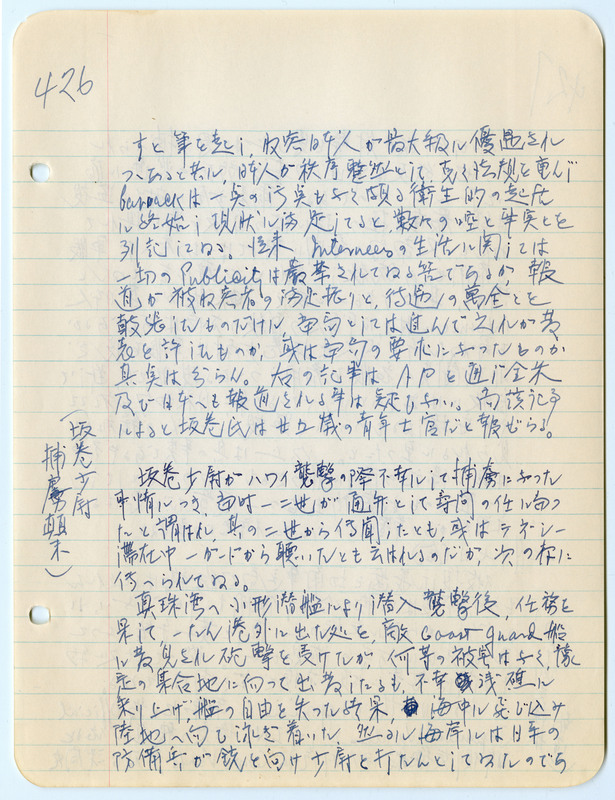 426
すと筆を起し、収容日本人が最大級に優遇され
つゝあると共に、日本人が秩序整然として、克く法規を重んじ
barrackは一点の汚点もなく頗る衛生的の起居
に終始し現状に満足してると、数々の嘘と事実とを
列記してゐる。従来 Interneesの生活に関しては
一切のPublicityは厳禁されてゐる筈であるが、報
道が被収容者の満足振りと、待遇の萬全とを
鼓張したものだけに、当局としては進んで之れが発
表を許したものか、或は当局の要求によったものか
真実は分らん。右の記事は APを通じ全米
及び日本へも報道される事は疑ひない。尚該記事
によると坂巻氏は廿五歳の青年士官だと報ぜらる。
(坂巻少尉
捕虜顛末)
坂巻少尉がハワイ襲撃の際不幸にして捕虜になった
事情につき、当時一二世が通弁として尋問の任に当つ
たと謂はれ、其の二世から傳聞したとも、或はラネシー
滞在中一ガードから聴いたとも云はれるのだが、次の様に
傳へられてゐる。
真珠湾へ小形潜艦により潜入襲撃後、任務を
果して一たん港外に出た処を、敵 Coast guard 船
に発見され砲撃を受けたが、何等の被害はなく、豫
定の集合地に向って出発したるも、不幸浅礁に
乗り上げ、艦の自由を失った結果、海中に飛び込み
陸地へ向て泳ぎ着いた。然るに海岸には日系の
防備兵が銃を向け少尉を打たんとしてゐたのでら